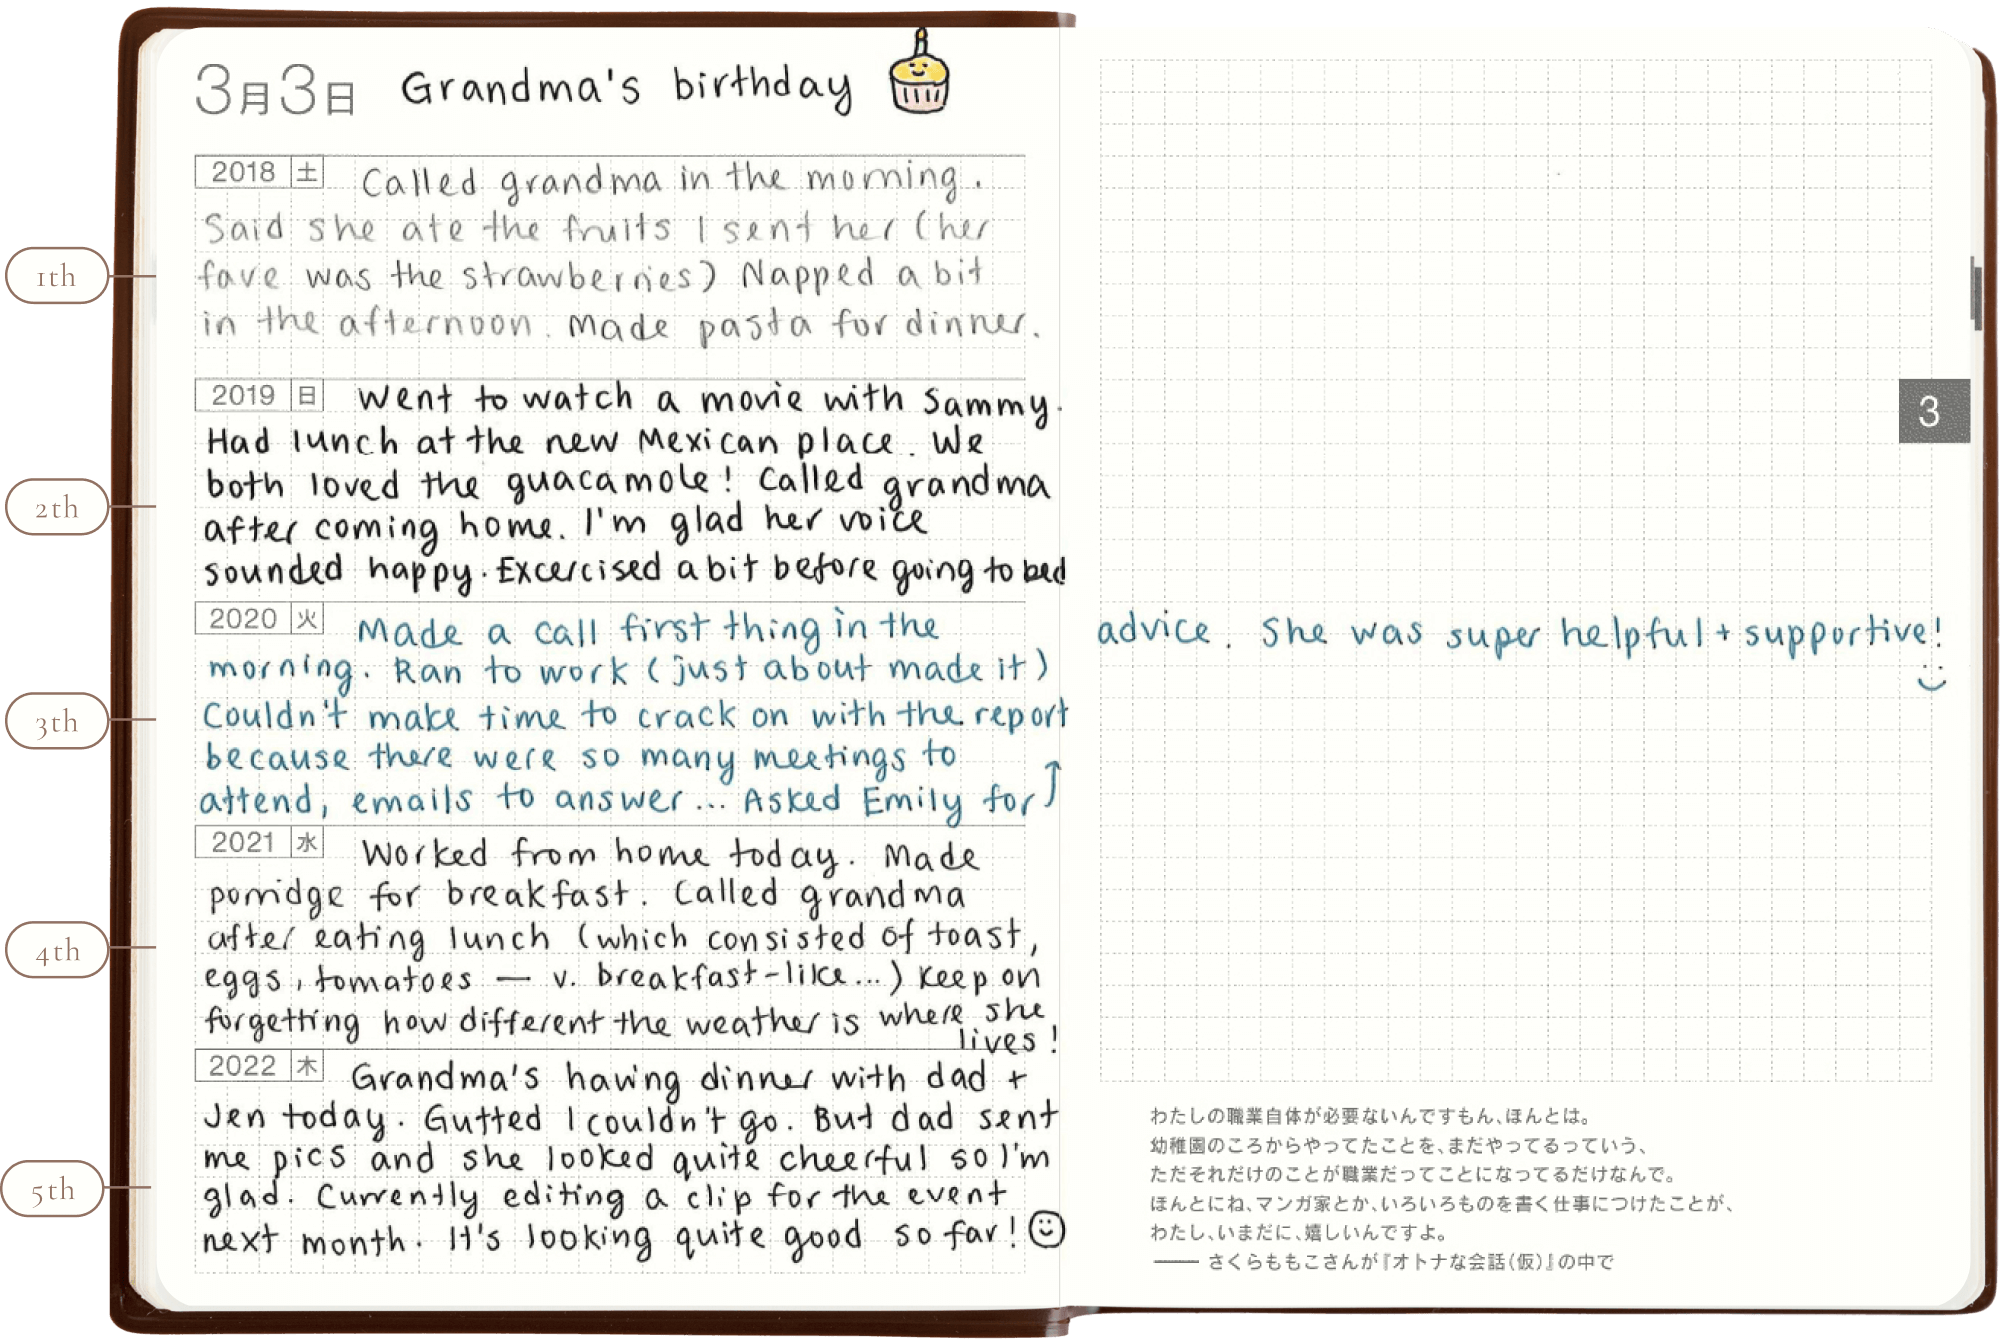 3月3日 Grandma's birthday
2018 土 Called grandma in the morning.
Said she ate the fruits I sent her (her
1th
fave was the strawberries) Napped a bit
in the afternoon. Made pasta for dinner.
2019 日 Went to watch a movie with Sammy.
Had lunch at the new Mexican place. We
both loved the guacamole! Called grandma
2th
after coming home. I'm glad her voice
sounded happy. Excercised a bit before going to bed
2020 火 Made a call first thing in the
morning. Ran to work (just about made it)
3th
Couldn't make time to crack on with the report
because there were so many meetings to
attend, emails to answer... Asked Emily for
2021 水 Worked from home today. Made
porridge for breakfast. Called grandma
after eating lunch (which consisted of toast,
4th
eggs, tomatoes — v. breakfast-like...) Keep on
forgetting how different the weather is where she
lives!
2022 木 Grandma's having dinner with dad +
Jen today. Gutted I couldn't go. But dad sent
me pics and she looked quite cheerful so I'm
5th
glad. Currently editing a clip for the event
next month. It's looking quite good so far!
3
advice. She was super helpful + supportive!
わたしの職業自体が必要ないんですもん、ほんとは。
幼稚園のころからやってたことを、まだやってるっていう、
ただそれだけのことが職業だってことになってるだけなんで。
ほんとにね、マンガ家とか、いろいろものを書く仕事につけたことが、
わたし、いまだに、嬉しいんですよ。
—— さくらももこさんが『オトナな会話(仮)』の中で